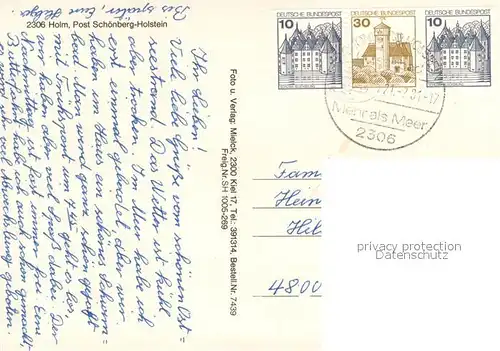 Bis später. Eure Helga
2306 Holm, Post Schönberg-Holstein
Ihr Lieben!
Viele liebe Grüße vom schönen Ost=
seestrand. Das Wetter ist kühl
aber trocken. Im Meer habe ich
erst einmal gebadet aber wir
haben im Haus ein schönes Schwimm=
bad. Man wird ganz schön
mit Frühsport um 7 geht es los,
wir haben aber viel Spaß dabei. Der
Nachmittag ist fast immer frei. Eine
habe ich auch schon gemacht,
viel Abwechslung geboten.
Foto u. Verlag: Mielck, 2300 Kiel 17, Tel.: 391314, Bestell.Nr. 7439
Freig.Nr.SH 1005-269
10 DEUTSCHE BUNDESPOST
30 DEUTSCHE BUNDESPOST
10 DEUTSCHE BUNDESPOST
Mehr als Meer
2306
Fam
Hein
Hil
4800
privacy protection
Datenschutz